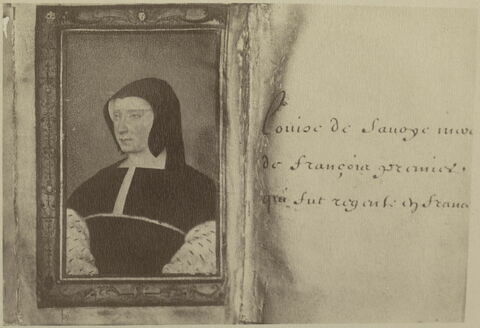 Louise de Savoye mere
de françois premier.
qui fut regente en franc